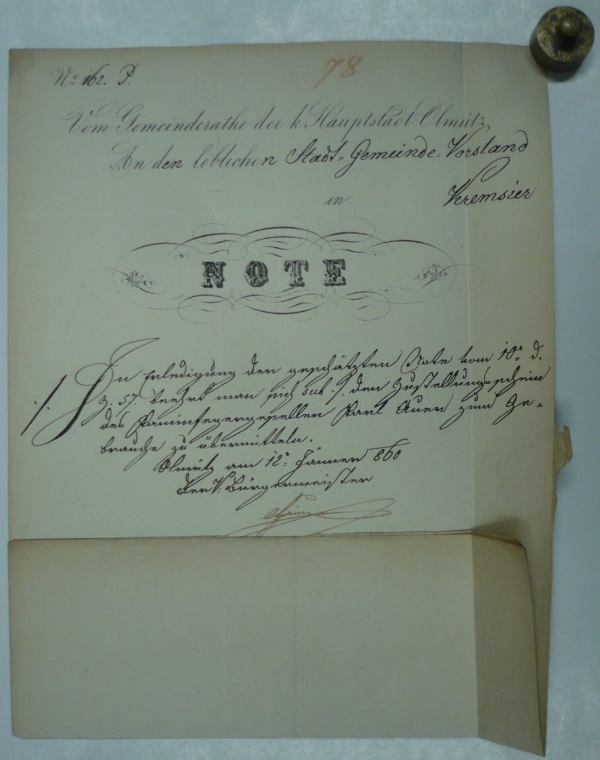 No 162. P.
78
Vom Gemeinderathe der k. Hauptstadt Olmütz
An den loblichen Stadt-Gemeinde-Vorstand
in Kremsier
NOTE
In Erledigung der geschätzten Note vom 10n d.
Z. 57 beehrt man sich sub ./. den Zustellungsschein
des Kaminfegergesellen Karl Auer zum Ge-
brauche zu übermitteln.
Olmütz am 12n Jänner 860
Der Bürgermeister